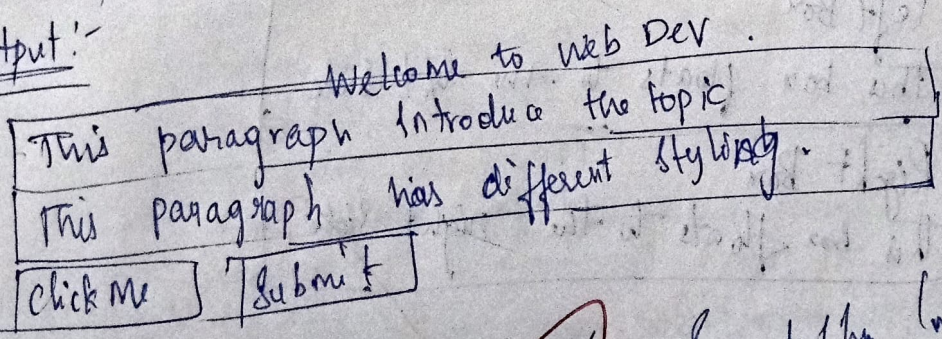 tput:-
Welcome to Web Dev.
This paragraph introduce the topic
This paragraph has different styling.
Click Me Submit